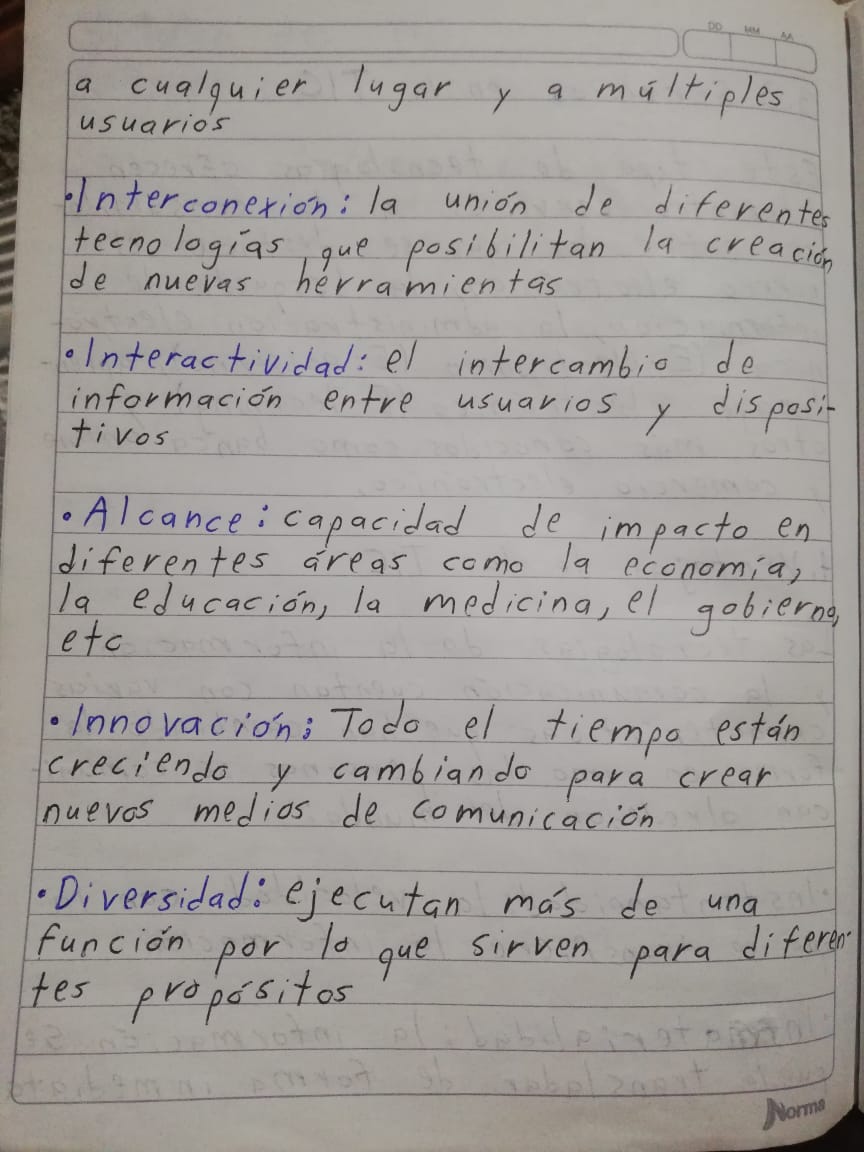 DD MM AA
a cualquier lugar y a múltiples
usuarios
•Interconexión: la unión de diferentes
tecnologías, que posibilitan la creación
de nuevas herramientas
•Interactividad: el intercambio de
información entre usuarios y disposi-
tivos
•Alcance: capacidad de impacto en
diferentes áreas como la economía,
la educación, la medicina, el gobierno,
etc
•Innovación: Todo el tiempo están
creciendo y cambiando para crear
nuevos medios de comunicación
•Diversidad: ejecutan más de una
función por lo que sirven para diferen-
tes propósitos
Norma